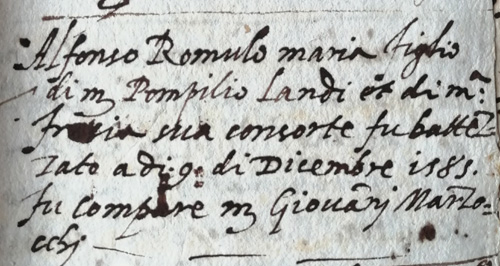 Alfonso Romulo maria figlio
di m Pompilio Landi et di mᵃ:
sua consorte fu battez=
zato a di: 9: di Dicembre 1585.
fu compare m Giovanj Marzo=
cchj